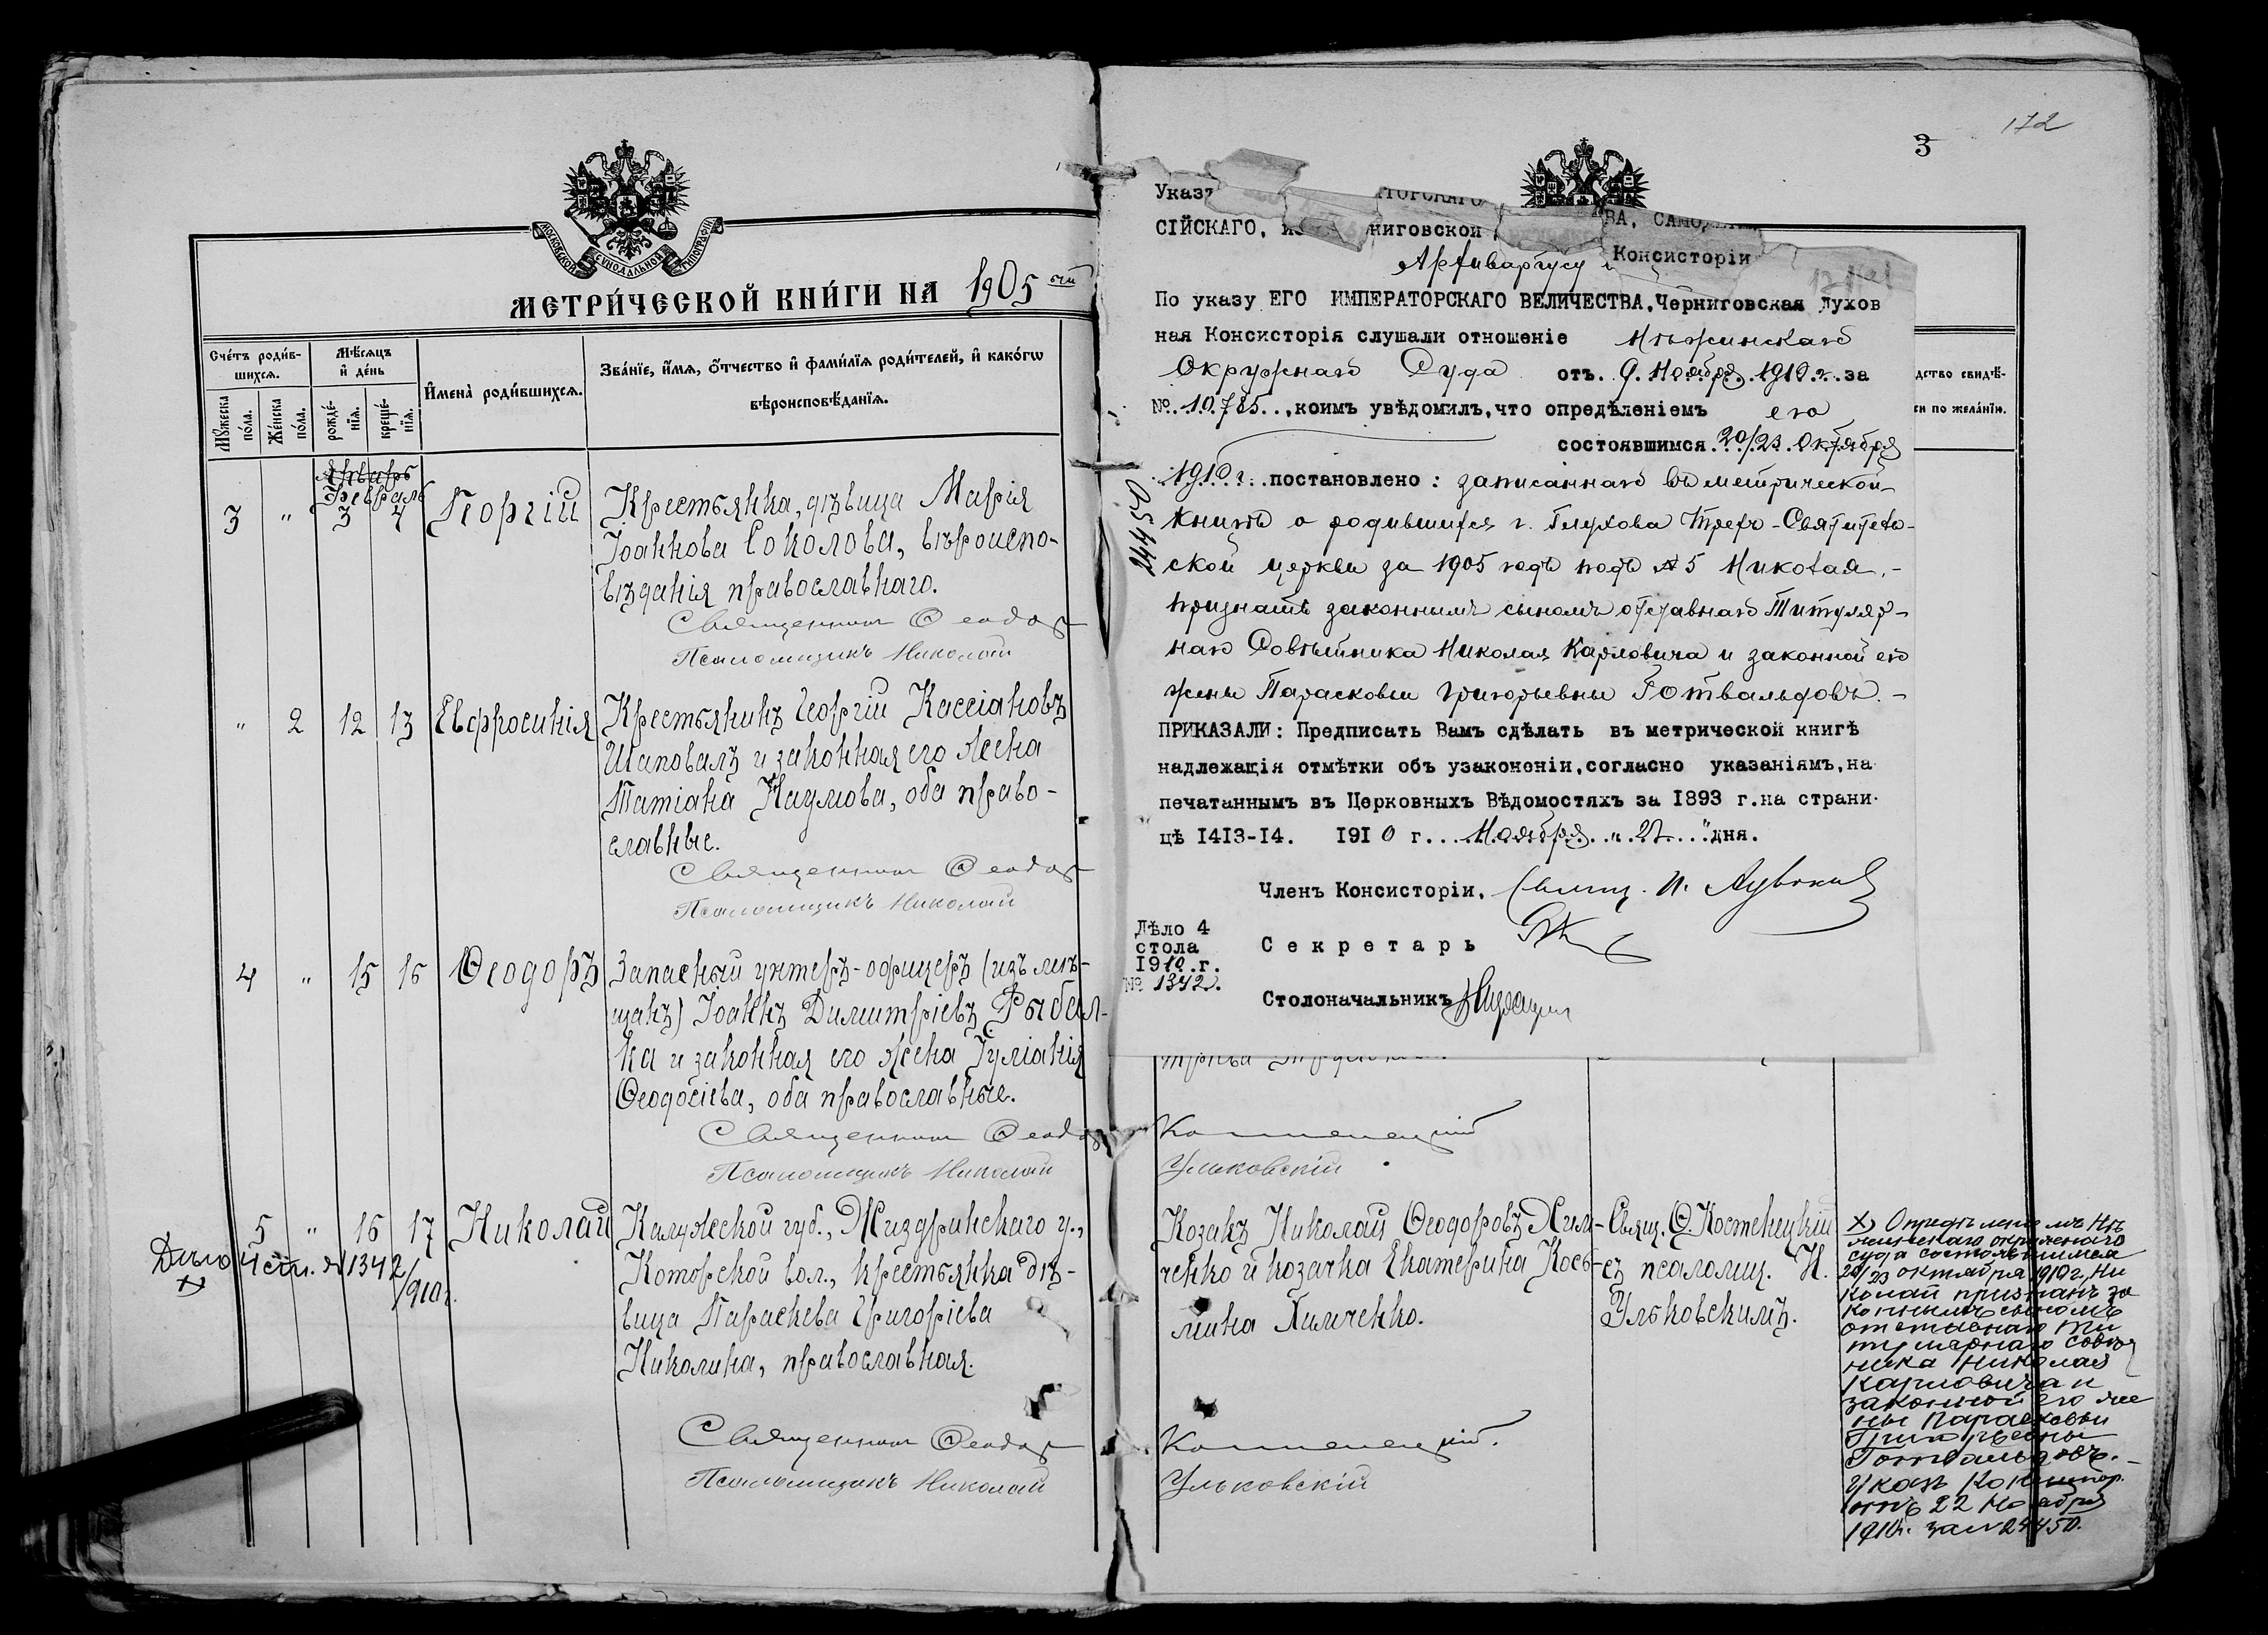 МОСКОВСКОЙ СѴНОДАЛЬНОЙ ТИПОГРАФІИ
МЕТРИ́ЧЕСКОЙ КНИ́ГИ НА 1905 ый
Сче́тъ роди́в-
шихсѧ.
Мꙋ́жеска по́ла.
Же́нска по́ла.
Мѣ́сѧцъ
и҆ де́нь
рожде́-
нїѧ.
креще́-
нїѧ.
И҆мена̀ роди́вшихсѧ.
Зва́нїе, и҆́мѧ, ѻ҆́тчество и҆ фами́лїѧ роди́телей, и҆ како́гѡ
вѣроисповѣ́данїѧ.
Январь
Февраль
3 " 3 4 Георгій
Крестьянка, дѣвица Марія
Іоаннова Соколова, вѣроиспо-
вѣданія православнаго.
Священник Ѳеодор
Псаломщикъ Николай
" 2 12 13 Евфросинія
Крестьянинъ Георгій Кассіановъ
Шаповалъ и законная его жена
Татіана Наумова, оба право-
славные.
Священник Ѳеодор
Псаломщикъ Николай
4 " 15 16 Ѳеодоръ
Запасный унтеръ-офицеръ (изъ мѣ-
щанъ) Іоаннъ Димитріевъ Рыбал-
ка и законная его жена Іуліанія
Ѳеодосіева, оба православные.
Священник Ѳеодор
Псаломщикъ Николай
5 " 16 17 Николай
Дѣло 4 ст. № 1342/910 г.
Х
Калужской губ., Жиздринскаго у.,
Которской вол., крестьянка дѣ-
вица Параскева Григоріева
Николина, православная.
Священник Ѳеодор
Псаломщикъ Николай
172
3
Указъ ТОРСКАГО ВА, САМОД
СІЙСКАГО, ИЗ НИГОВСКОЙ Консисторіи
Архиваріусу
По указу ЕГО ИМПЕРАТОРСКАГО ВЕЛИЧЕСТВА, Черниговская Духов
ная Консисторія слушали отношеніе Нѣжинскаго
Окружнаго Суда отъ 9 Ноября 1910 г. за
№ 10785, коимъ увѣдомилъ, что опредѣленіемъ его
состоявшимся 20/23 Октября
1910 г. постановлено: записаннаго въ метрической
книгѣ о родившихся г. Глухова Трехъ-Святитель-
ской церкви за 1905 годъ подъ № 5 Николая, -
признать законнымъ сыномъ отставнаго Титуляр-
наго Совѣтника Николая Карловича и законной его
жены Парасковьи Григорьевны Готвальдовъ. -
ПРИКАЗАЛИ: Предписать Вамъ сдѣлать въ метрической книгѣ
надлежащія отмѣтки объ узаконеніи, согласно указаніямъ, на
печатаннымъ въ Церковныхъ Вѣдомостяхъ за 1893 г. на страни
цѣ 1413-14. 1910 г. Ноября "22" дня.
24450
Членъ Консисторіи,
Дѣло 4
стола
1910 г.
№ 1342.
Секретарь
Столоначальникъ
дство свидѣ-
си по жела́нїю.
Ульковскій
Козакъ Николай Ѳеодоровъ Хим-
ченко и козачка Екатерина Кось-
мина Химченко.
Свящ. Ѳ. Костенецкій
съ псаломщ. Н.
Ульковскимъ.
Ульковскій
Х) Опредѣленіемъ Нѣ
жинскаго окружнаго
суда состоявшимся
20/23 октября 1910 г., Ни
колай признанъ за
коннымъ сыномъ
отставнаго Ти
тулярнаго совѣт
ника Николая
Карловича и
законной его же
ны Парасковьи
Григорьевны
Готвальдовъ. -
Указъ Консистор.
отъ 22 Ноября
1910 г. за № 24450.